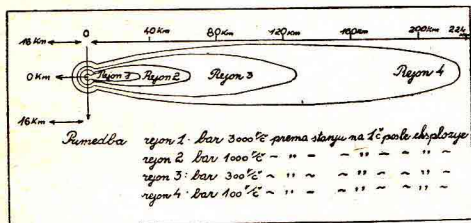 16 Km 0 40 Km 80 Km 120 Km 160 Km 200 Km 224
0 Km Rejon 1 Rejon 2 Rejon 3 Rejon 4
16 Km
Primedba rejon 1 - bar 3000 r/č prema stanju na 1č posle eksplozije
rejon 2 bar 1000 r/č ~ " ~ ~ " ~ ~ " ~
rejon 3 : bar 300 r/č ~ " ~ ~ " ~ ~ " ~
rejon 4 : bar 100 r/č ~ " ~ ~ " ~ ~ " ~